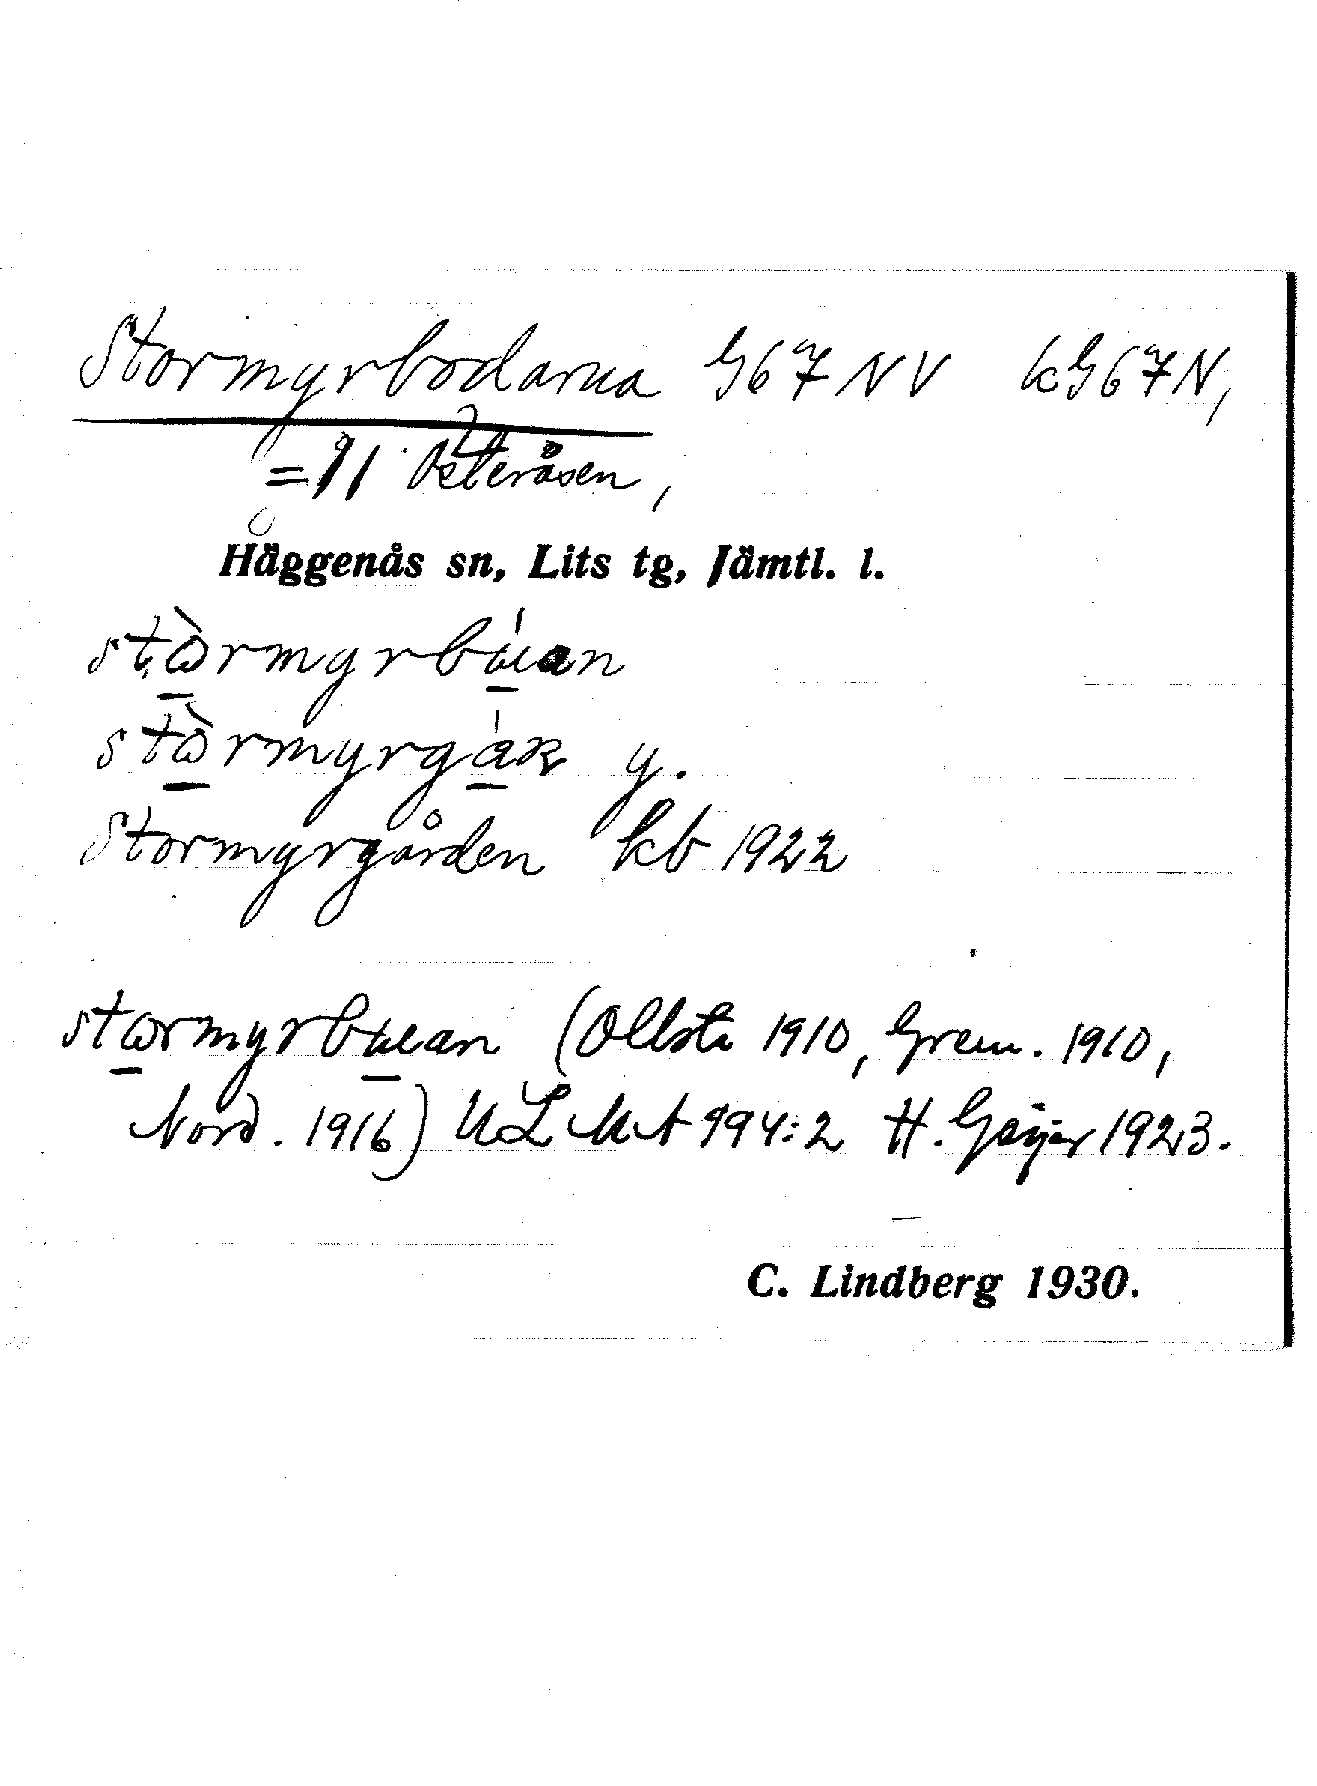 Stormyrbodarna G67NV kG67N,
= 1/1 Österåsen,
Häggenås sn, Lits tg, Jämtl. l.
stɷ̀rmyrbúan
stɷ̀rmyrgáɴ y.
Stormyrgården kb 1922
stɷrmyrbuan (Ollsta 1910, Grem. 1910,
Nord. 1916) ULMA 994:2 H. Geijer 1923.
C. Lindberg 1930.